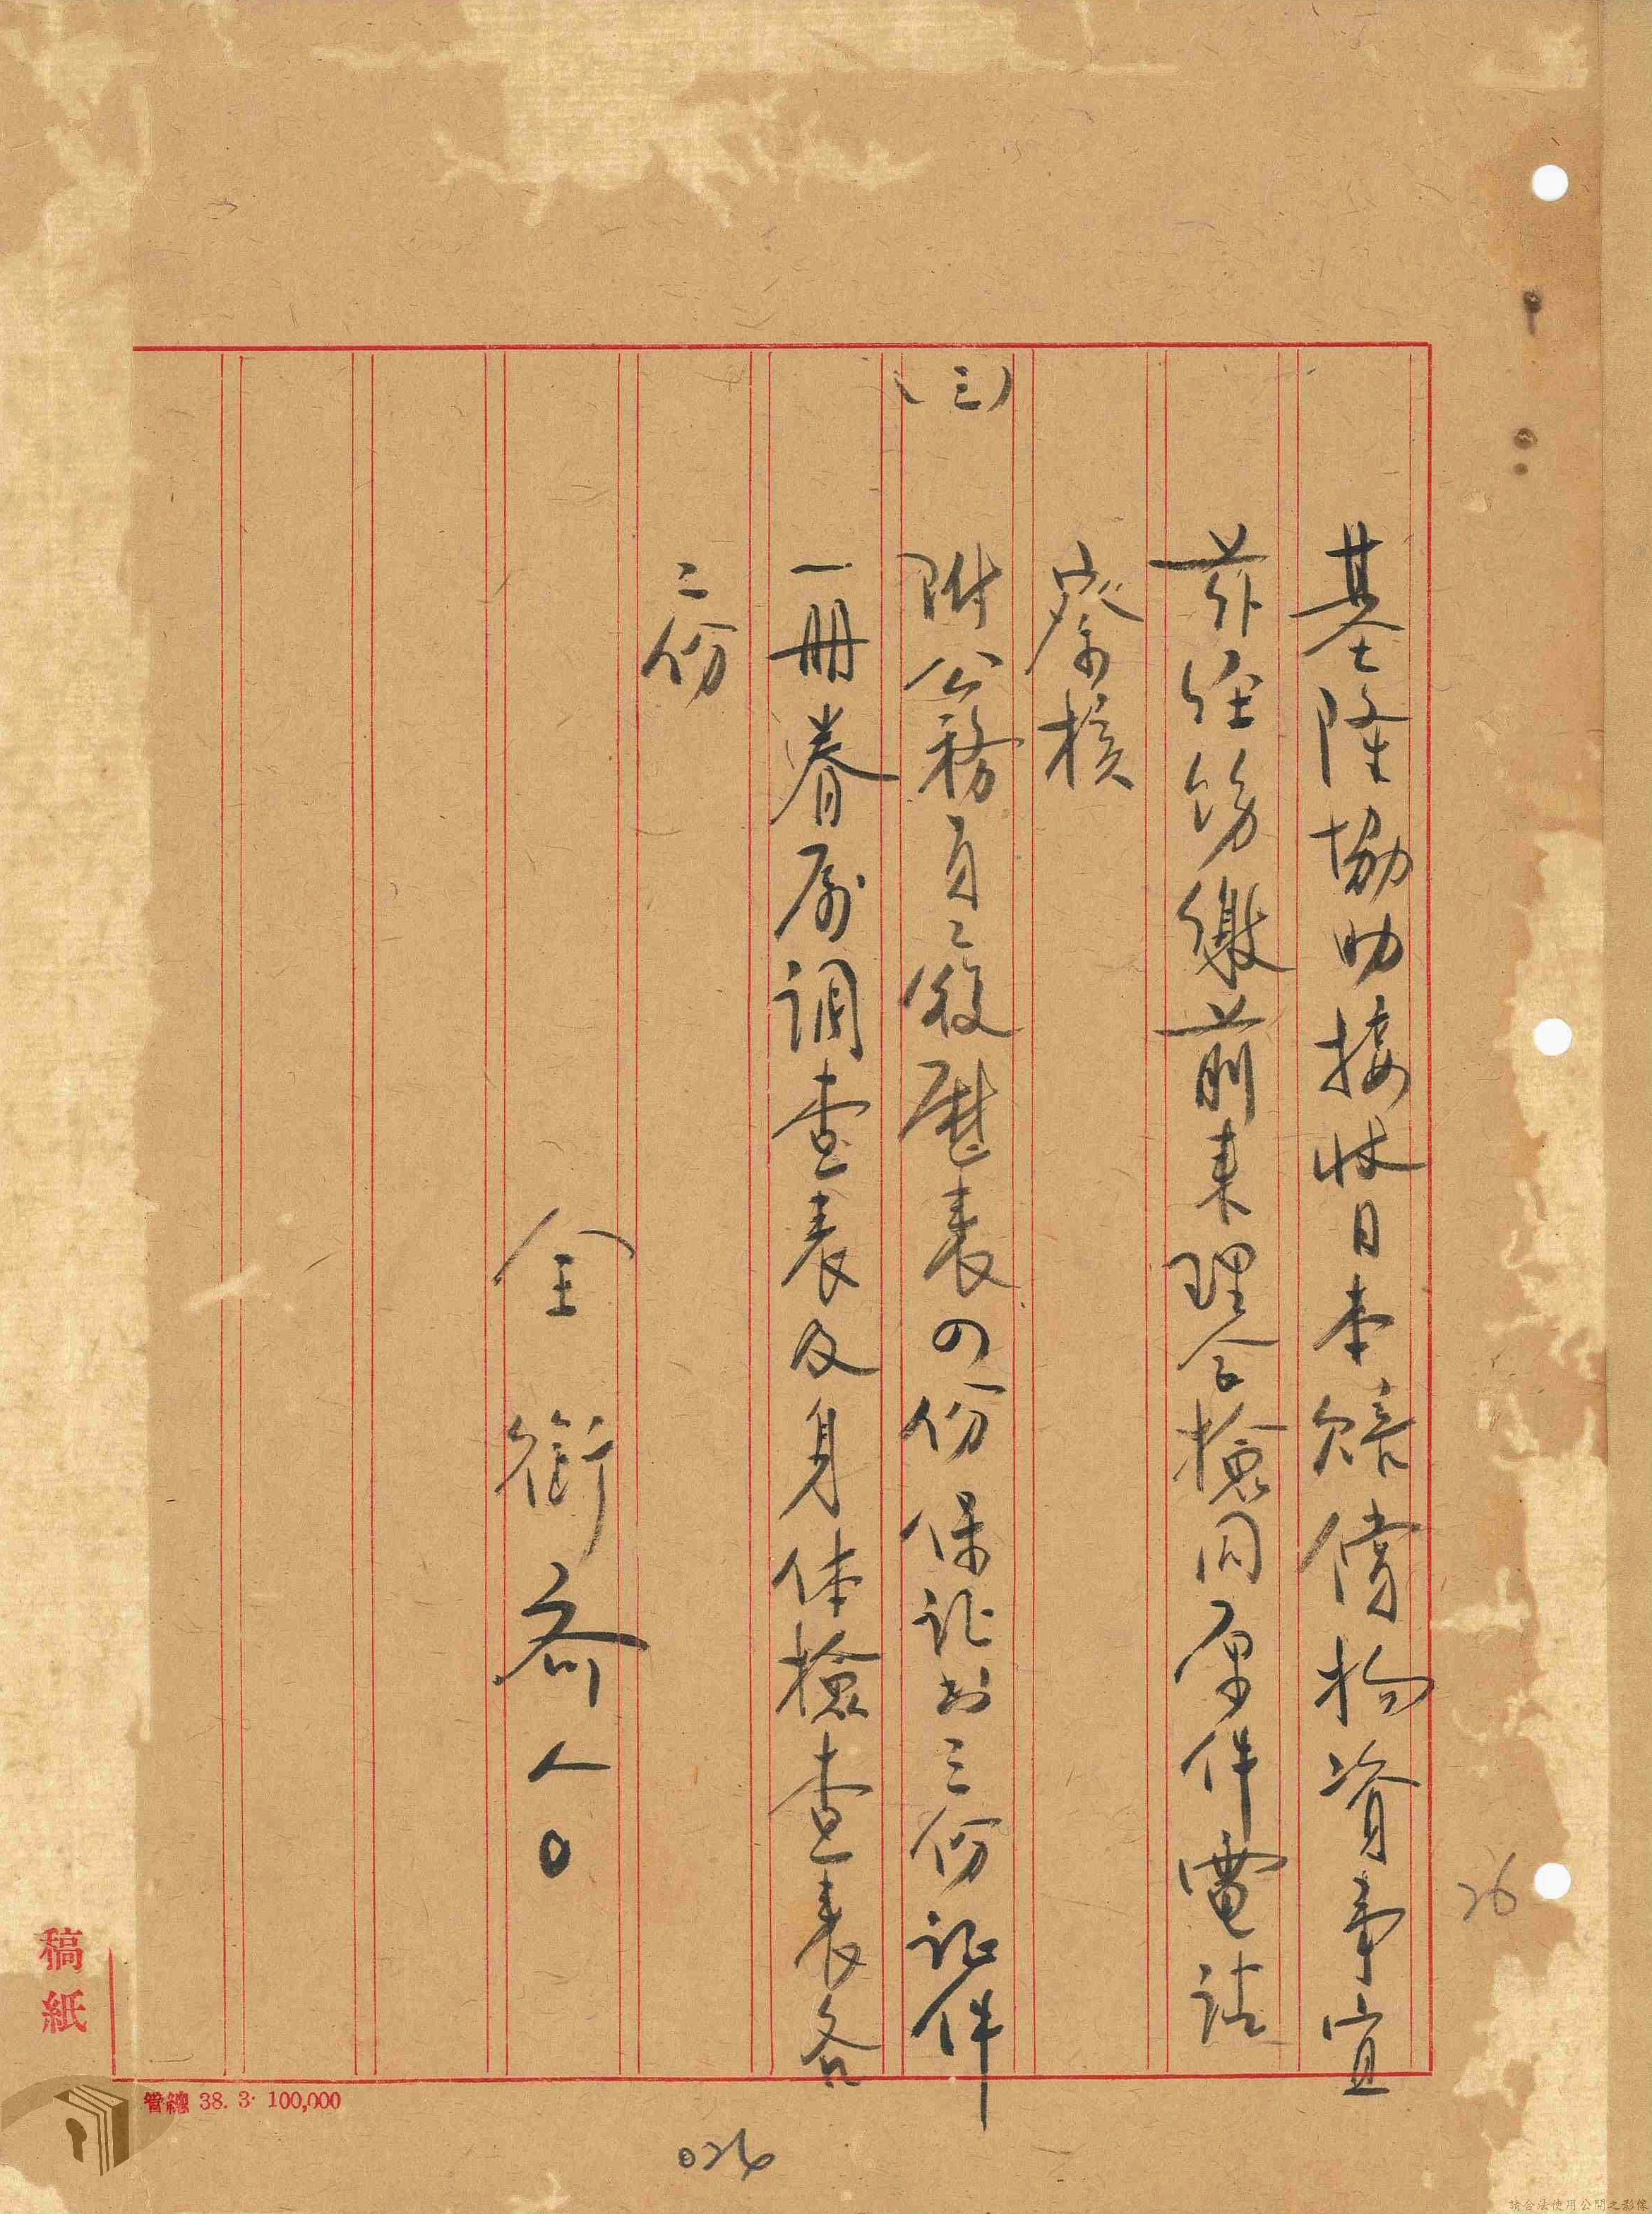 基隆協助接收日本賠償物資事宜
茲經飭繳前来理合檢同原件電請
察核
(三)附公務員之履歷表四份保証书三份証件
一册眷屬調查表及身体檢查表各
二份
全銜 人〇
稿紙
管總 38. 3. 100,000
26
026
請合法使用公開之影像